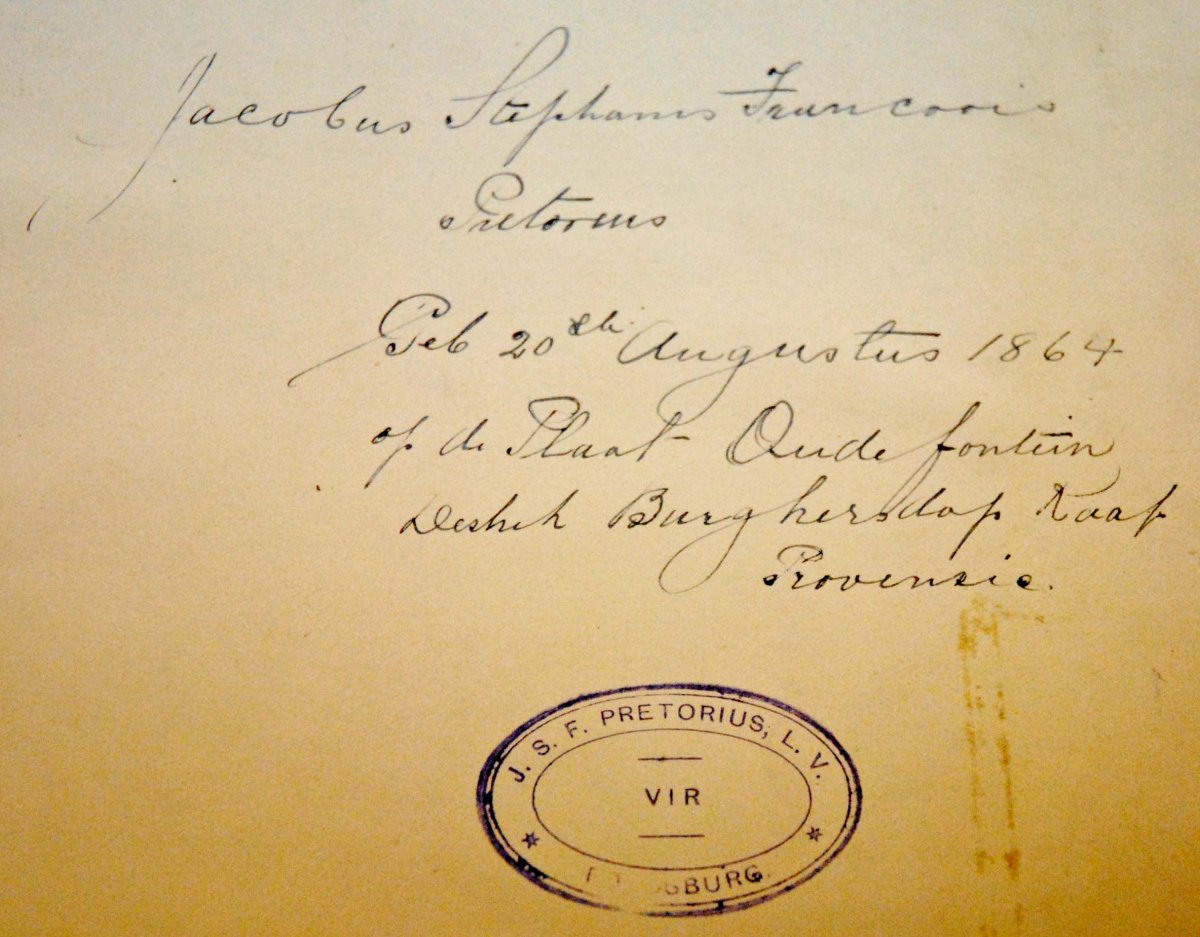 Jacobus Stephanus Francoois
Pretorius
Geb 20ste Augustus 1864
op de Plaat Oudefontein
Burghersdop Kaap
Provensie.
J. S. F. PRETORIUS, L. V.
VIR